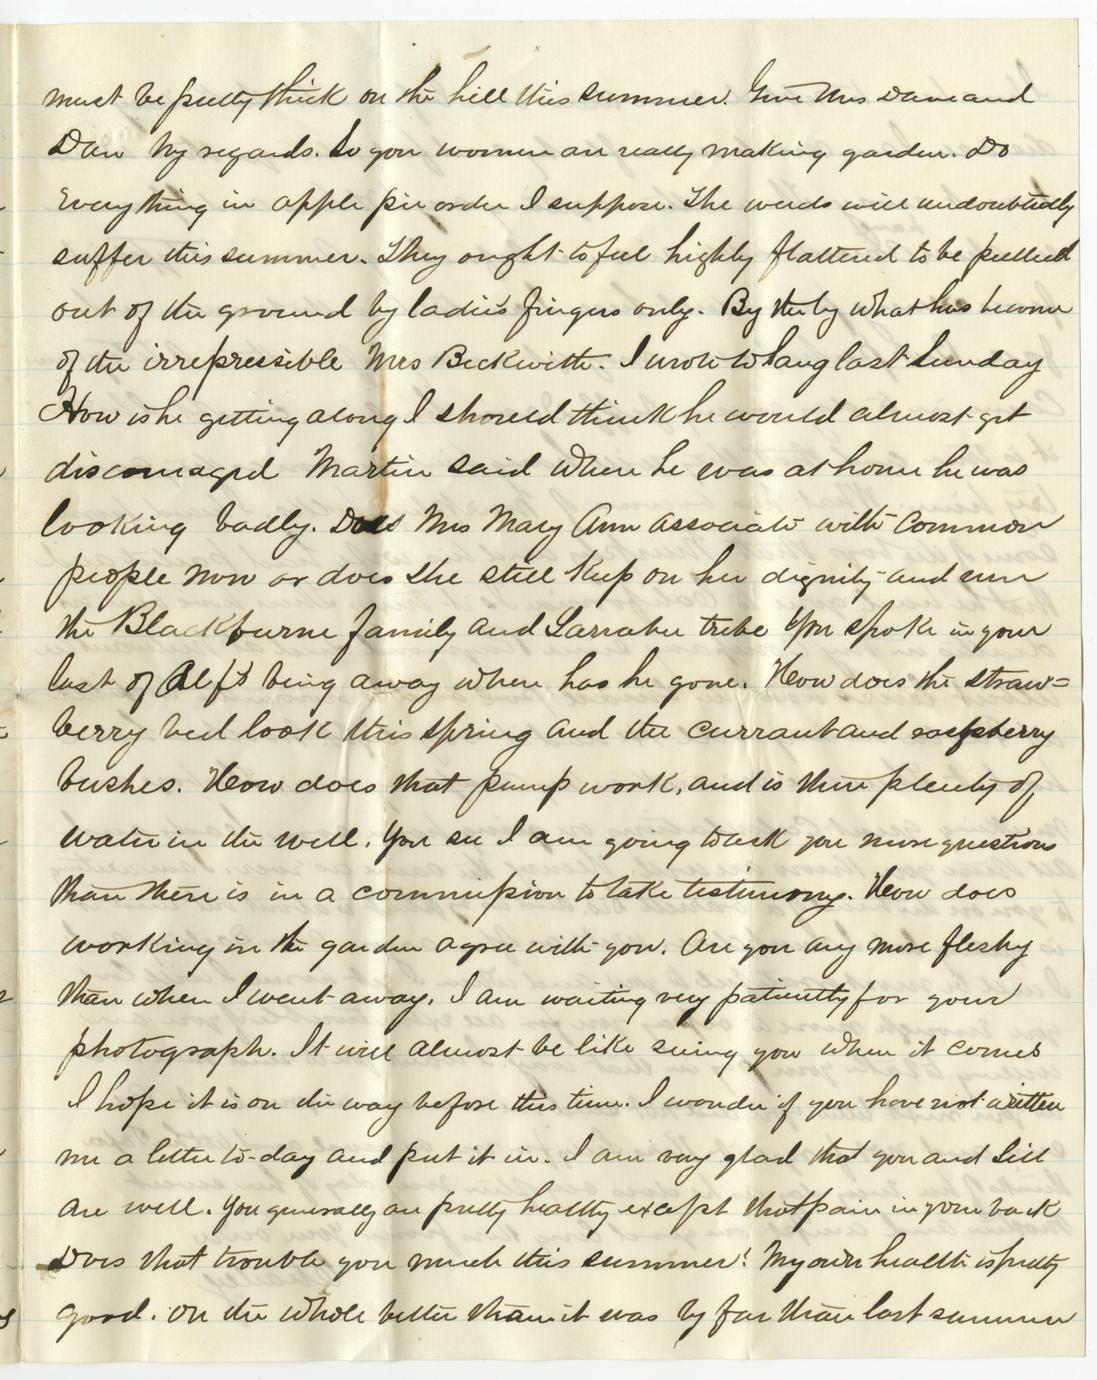 must be pretty thick on the hill this summer. Give Mrs Dane and
Dan my regards. So you women are really making garden. Do
Everything in apple pie order I suppose. The weeds will undoubtedly
suffer this summer. They ought to feel highly flattered to be pulled
out of the ground by ladies fingers only. By the by what has become
of the irrepressible Mrs Beckwith. I wrote to Lang last Sunday
How is he getting along I should think he would almost get
discouraged Martin said when he was at home he was
looking badly. Does Mrs Mary Ann associate with common
people now or does she still keep on her dignity and run
the Blackburne family and Larrabee tribe You spoke in your
last of Alf's being away where has he gone. How does the straw=
berry bed look this spring and the currant and raspberry
bushes. How does that pump work, and is there plenty of
water in the well. You see I am going to ask you more questions
than there is in a commission to take testimony. How does
working in the garden agree with you. Are you any more fleshy
than when I went away. I am waiting very patiently for your
photograph. It will almost be like seeing you when it comes
I hope it is on the way before this time. I wonder if you have not written
me a letter to-day and put it in. I am very glad that you and Lill
are well. You generally are pretty healthy except that pain in your back
Does that trouble you much this summer? My own health is pretty
good. On the whole better than it was by far than last summer